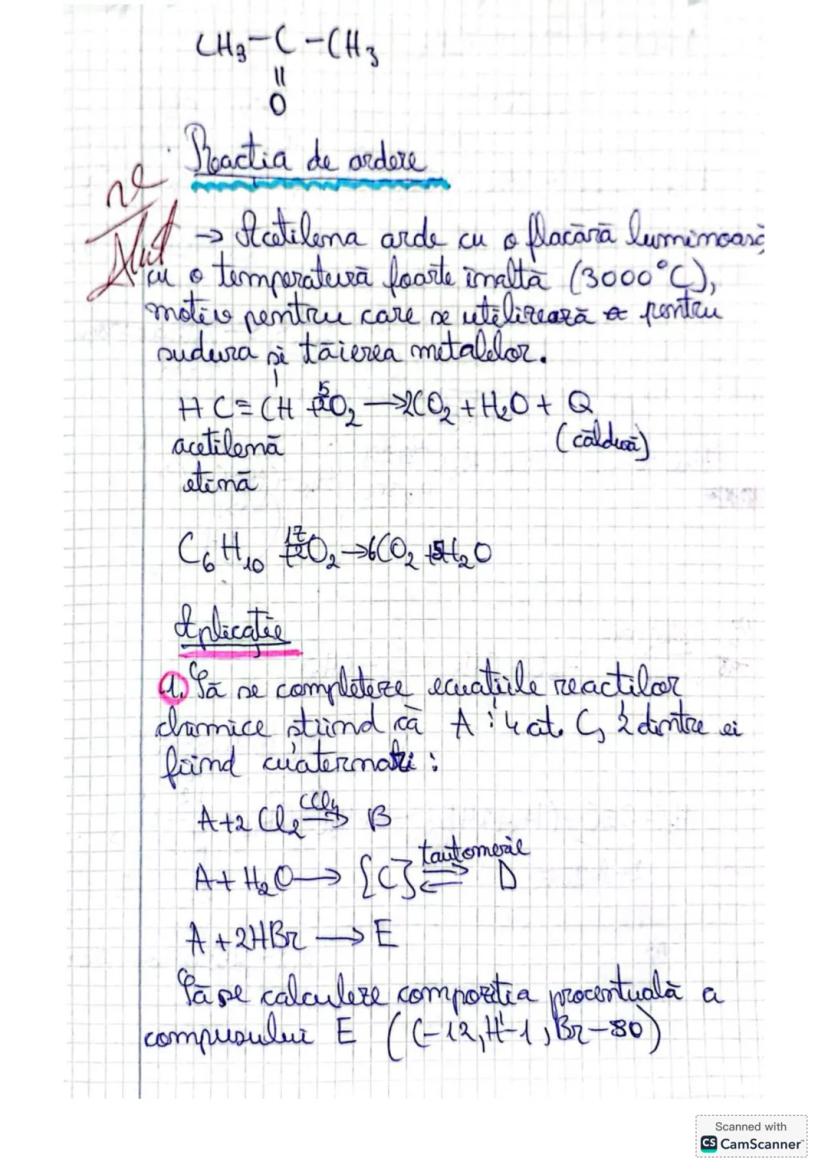 CH3-C-CH3
||
O
Reactia de ardere
→ Acetilena arde cu o flacără luminoasă
cu o temperatură foarte înaltă (3000°C),
motiv pentru care se utilizează pentru
sudura și tăierea metalelor.
HC≡CH + 5/2 O2 → 2CO2 + H2O + Q
acetilenă (căldură)
etină
C6H10 + 17/2 O2 → 6CO2 + 5H2O
Aplicație
1. Să se completeze ecuațiile reactilor
chimice știind că A: 4 at. C, 2 dintre ei
fiind cuaternari:
A+2Cl2 CCl4→ B
A+H2O → {C} tautomerie ⇌ D
A+2HBr → E
Să se calculeze compoziția procentuală a
compusului E (C-12, H-1, Br-80)
Scanned with
CS CamScanner